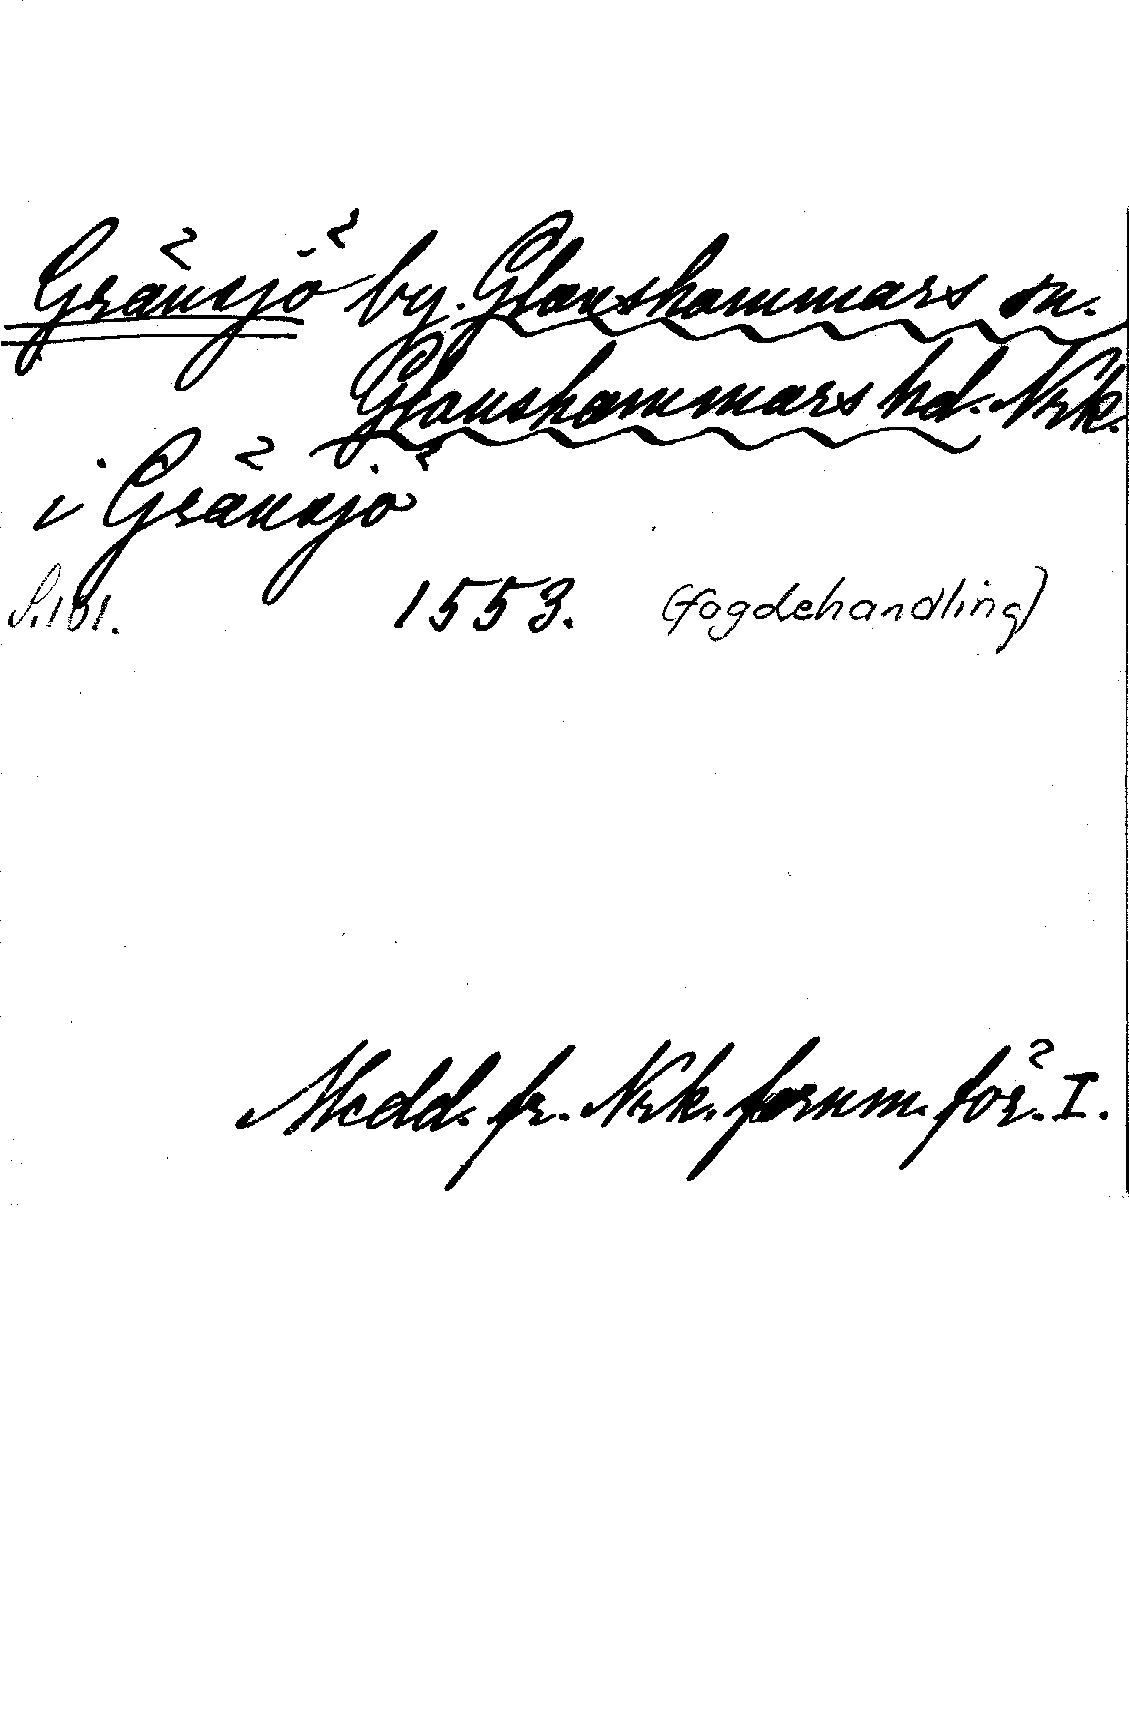 Gränsjö by. Glanshammars sn.
Glanshammars hd. Nrk.
i Gränsjö
S. 101. 1553. (fogdehandling)
Medd. fr. Nrk. fornm. för. I.